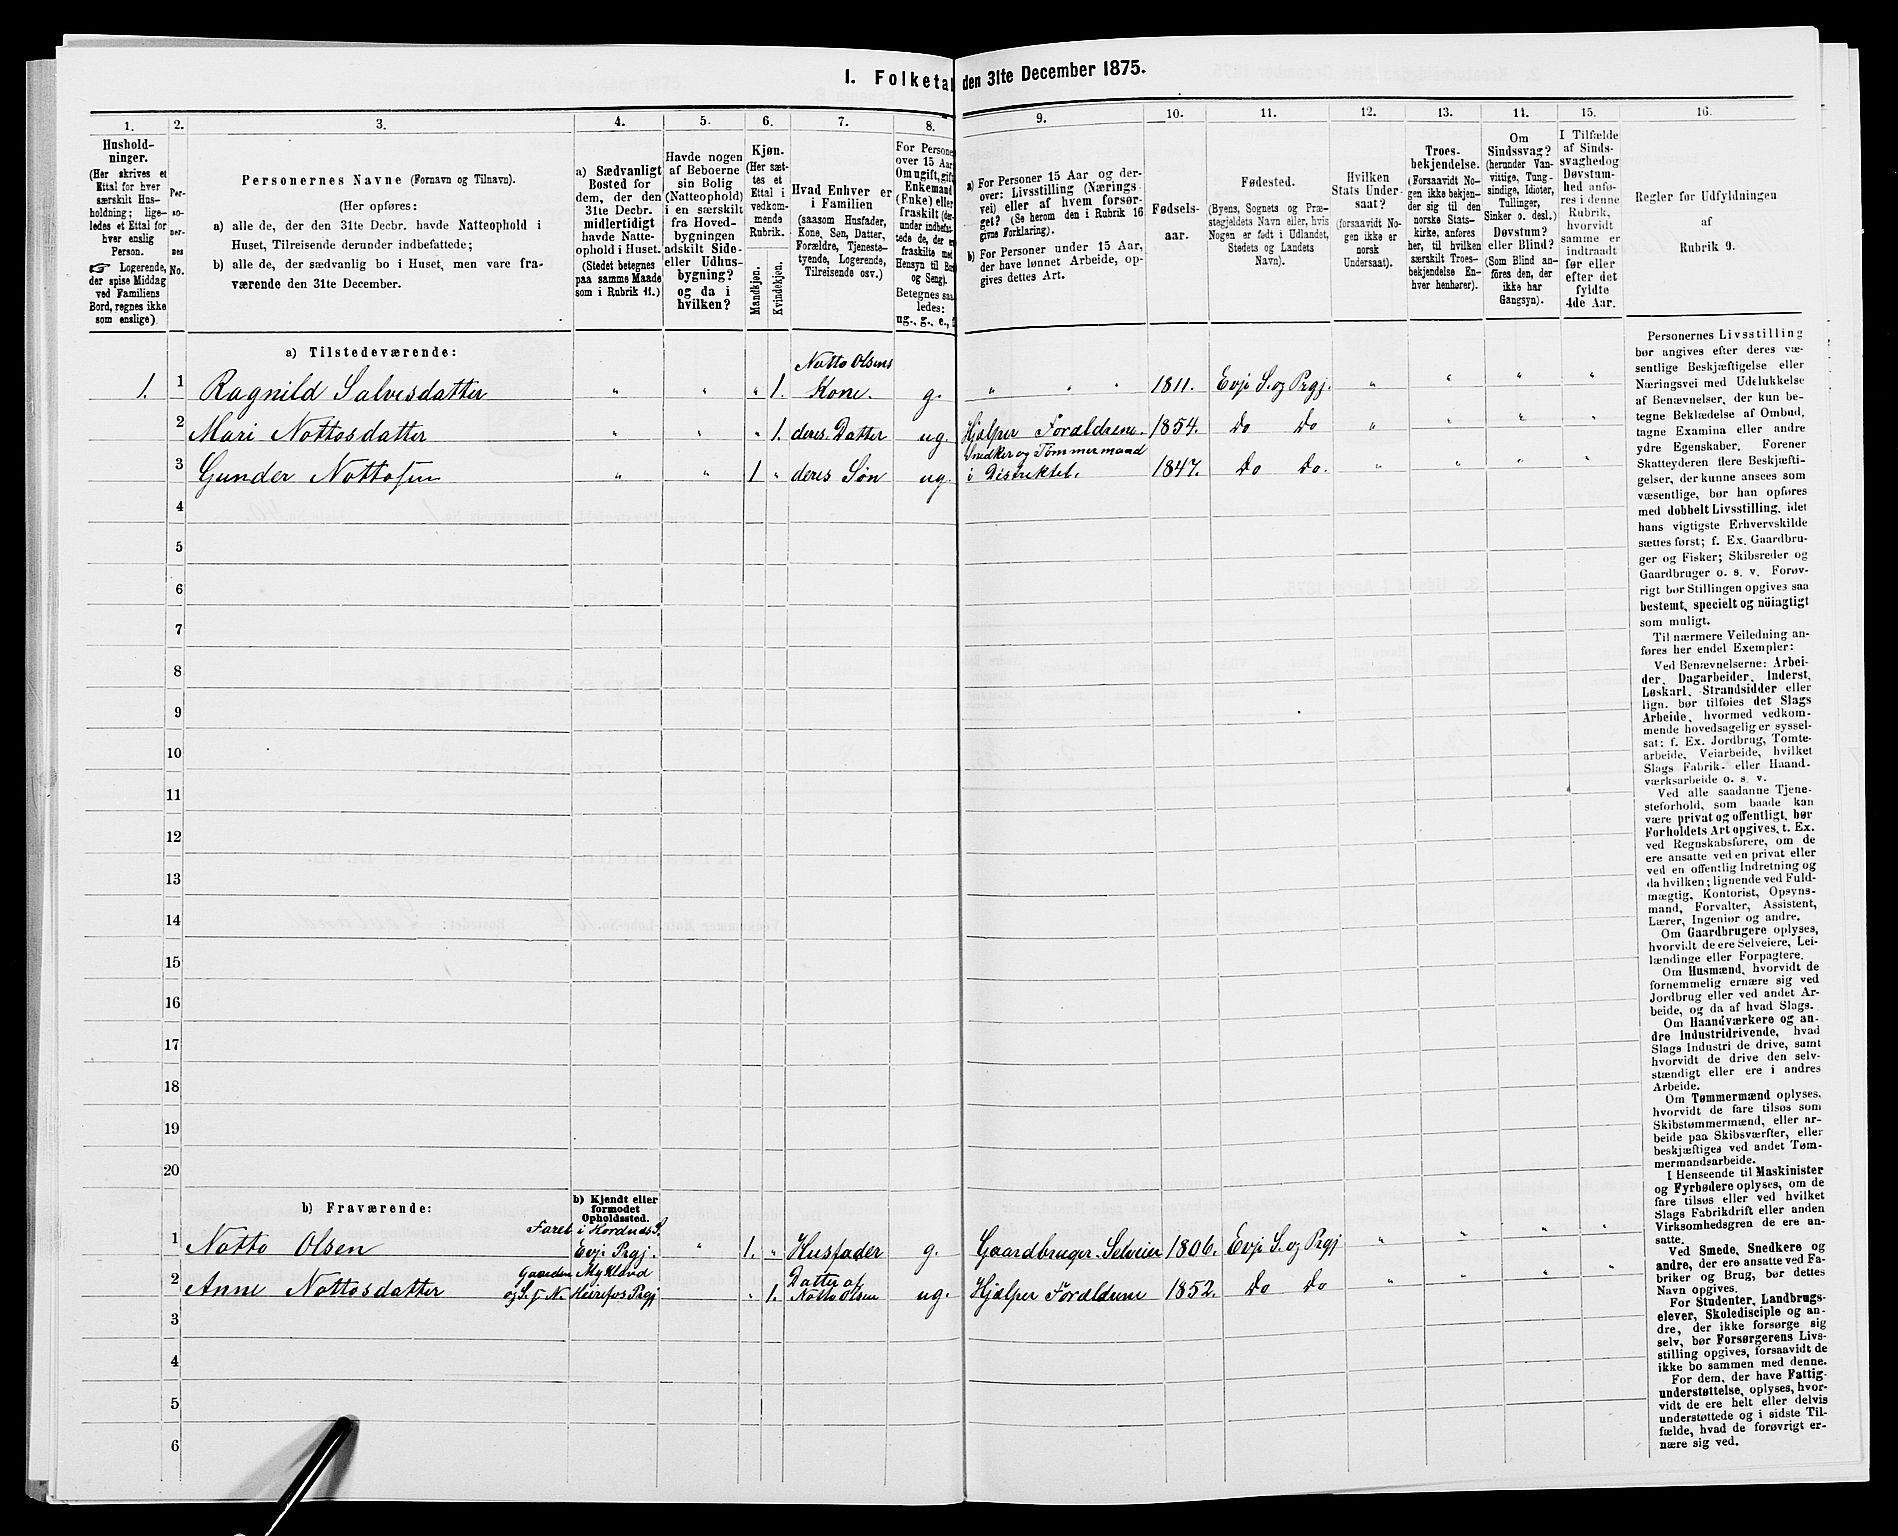 I. Folketal den 31te December 1875.
1. 2. 3. 4. 5. 6. 7. 8. 9. 10. 11. 12. 13. 14. 15. 16.
Hushold-
ninger.
(Her skrives et
Ettal for hver
særskilt Hus-
holdning; lige-
ledes et Ettal for
hver enslig
Person.
☞ Logerende,
der spise Middag
ved Familiens
Bord, regnes ikke
som enslige).
Per-
so-
ner-
nes
No.
Personernes Navne (Fornavn og Tilnavn).
(Her opføres:
a) alle de, der den 31te Decbr. havde Natteophold i
Huset, Tilreisende derunder indbefattede;
b) alle de, der sædvanlig bo i Huset, men vare fra-
værende den 31te December.
a) Sædvanligt
Bosted for
dem, der den
31te Decbr.
midlertidigt
havde Natte-
ophold i Huset.
(Stedet betegnes
paa samme Maade
som i Rubrik 11.)
Havde nogen
af Beboerne
sin Bolig
(Natteophold)
i en særskilt
fra Hoved-
bygningen
adskilt Side-
eller Udhus-
bygning?
og da i
hvilken?
Kjøn.
(Her sæt-
tes et
Ettal i
vedkom-
mende
Rubrik.
Mandkjøn.
Kvindekjøn.
Hvad Enhver er
i Familien
(saasom Husfader,
Kone, Søn, Datter,
Forældre, Tjeneste-
tyende, Logerende,
Tilreisende osv.)
For Persone
over 15 Aar
Om ugift, gift,
Enkemand
(Enke) eller
fraskilt (der-
under indbefat-
tede de, der er
fraskilte med
Hensyn til Bord
og Seng).
Betegnes saa-
ledes:
ug., g., e.,
a) For Personer 15 Aar og der-
over: Livsstilling (Nærings-
vei) eller af hvem forsør-
get? (Se herom den i Rubrik 16
givns Forklaring).
b) For Personer under 15 Aar,
der have lønnet Arbeide, op-
gives dettes Art.
Fødsels-
aar.
Fødested.
(Byens, Sognets og Præ-
stegjeldets Navn eller, hvis
Nogen er født i Udlandet,
Stedets og Landets
Navn).
Hvilken
Stats Under-
saat?
(forsaavidt No-
gen ikke er
norsk
Undersaat).
Troes-
bekjendelse.
(Forsaavidt No-
gen ikke bekjen-
der sig til den
norske Stats-
kirke, anføres
her, til hvilken
særskilt Troes-
bekjendelse En-
hver henhører).
Om
Sindssvag?
(herunder Van-
vittige, Tung-
sindige, Idioter,
Tullinger,
Sinker o. desl.)
Døvstum?
eller Blind?
(Som Blind an-
føres den, der
ikke har
Gangsyn).
I Tilfælde
af Sinds-
svaghed og
Døvstum-
hed anfø-
res i denne
Rubrik,
hvorvidt
samme er
indtraadt
før eller
efter det
fyldte
4de Aar.
Regler for Udfyldningen
af
Rubrik 9.
a) Tilstedeværende:
1. 1 Ragnild Salvesdatter " " " 1. Notto Olsens Kone. g. " " " 1811. Evje S. og Prgj. " " " "
2 Mari Nottosdatter " " " 1. deres Datter ug. Hjælper Forældrene. 1854. Do Do " " " "
3 Gunder Nottosen " " 1 " deres Søn ug. Snedker og Tømmermand i Distriktet. 1847. Do Do. " " " "
4
5
6
7
8
9
10
11
12
13
14
15
16
17
18
19
20
b) Fraværende:
b) Kjendt eller
formodet
Opholdssted.
1 Notto Olsen Faret i Hordnæs S. Evje Prgj. " 1. " Husfader g. Gaardbruger. Selveier 1806. Evje S. og Prgj " " " "
2 Anne Nottosdatter Gaarden Mykland og S. f N. Heirefos Prgj " 1. Datter af Notto Olsen ug. Hjælper Forældrene 1852. Do Do " " " "
3
4
5
6
Personernes Livsstilling
bør angives efter deres væ-
sentlige Beskjæftigelse eller
Næringsvei med Udelukkelse
af Benævnelser, der kun be-
tegne Beklædelse af Ombud,
tagne Examina eller andre
ydre Egenskaber. Forener
Skatteyderen flere Beskjæfti-
gelser, der kunne ansees som
væsentlige, bør han opføres
med dobbelt Livsstilling, idet
hans vigtigste Erhvervskilde
sættes først; f. Ex. Gaardbru-
ger og Fisker; Skibsreder og
Gaardbruger o. s. v. Forøv-
rigt bør Stillingen opgives saa
bestemt, specielt og nöiagtigt
som muligt.
Til nærmere Veiledning an-
føres her endel Exempler:
Ved Benævnelserne: Arbei-
der, Dagarbeider, Inderst,
Løskarl, Strandsidder eller
lign. bør tilføies det Slags
Arbeide, hvormed vedkom-
mende hovedsagelig er syssel-
sat; f. Ex. Jordbrug, Tomte-
arbeide, Veiarbeide, hvilket
Slags Fabrik- eller Haand-
værksarbeide o. s. v.
Ved alle saadanne Tjene-
steforhold, som baade kan
være privat og offentligt, bør
Forholdets Art opgives, t. Ex.
ved Regnskabsførere, om de
ere ansatte ved en privat eller
ved en offentlig Indretning og
da hvilken; lignende ved Fuld-
mægtig, Kontorist, Opsyns-
mand, Forvalter, Assistent,
Lærer, Ingeniør og andre.
Om Gaardbrugere oplyses,
hvorvidt de ere Selveiere, Lei-
lændinge eller Forpagtere.
Om Husmænd, hvorvidt de
fornemmelig ernære sig ved
Jordbrug eller ved andet Ar-
beide, og da af hvad Slags.
Om Haandværkere og an-
dre Industridrivende, hvad
Slags Industri de drive, samt
hvorvidt de drive den selv-
stændigt eller ere i andres
Arbeide.
Om Tømmermænd oplyses,
hvorvidt de fare tilsøs som
Skibstømmermænd, eller ar-
beide paa Skibsværfter, eller
beskjæftiges ved andet Tøm-
mermandsarbeide.
I Henseende til Maskinister
og Fyrbødere oplyses, om de
fare tilsøs eller ved hvilket
Slags Fabrikdrift eller anden
Virksomhedsgren de ere an-
satte.
Ved Smede, Snedkere og
andre, der ere ansatte ved Fa-
briker og Brug, bør dettes
Navn opgives.
For Studenter, Landbrugs-
elever, Skoledisciple og an-
dre, der ikke forsørge sig
selv, bør Forsørgerens Livs-
stilling opgives, forsaavidt de
ikke bo sammen med denne.
For dem, der have Fattig-
understøttelse, oplyses, hvor-
vidt de ere helt eller delvis
understøttede og i sidste Til-
fælde, hvad de forøvrigt er-
nære sig ved.